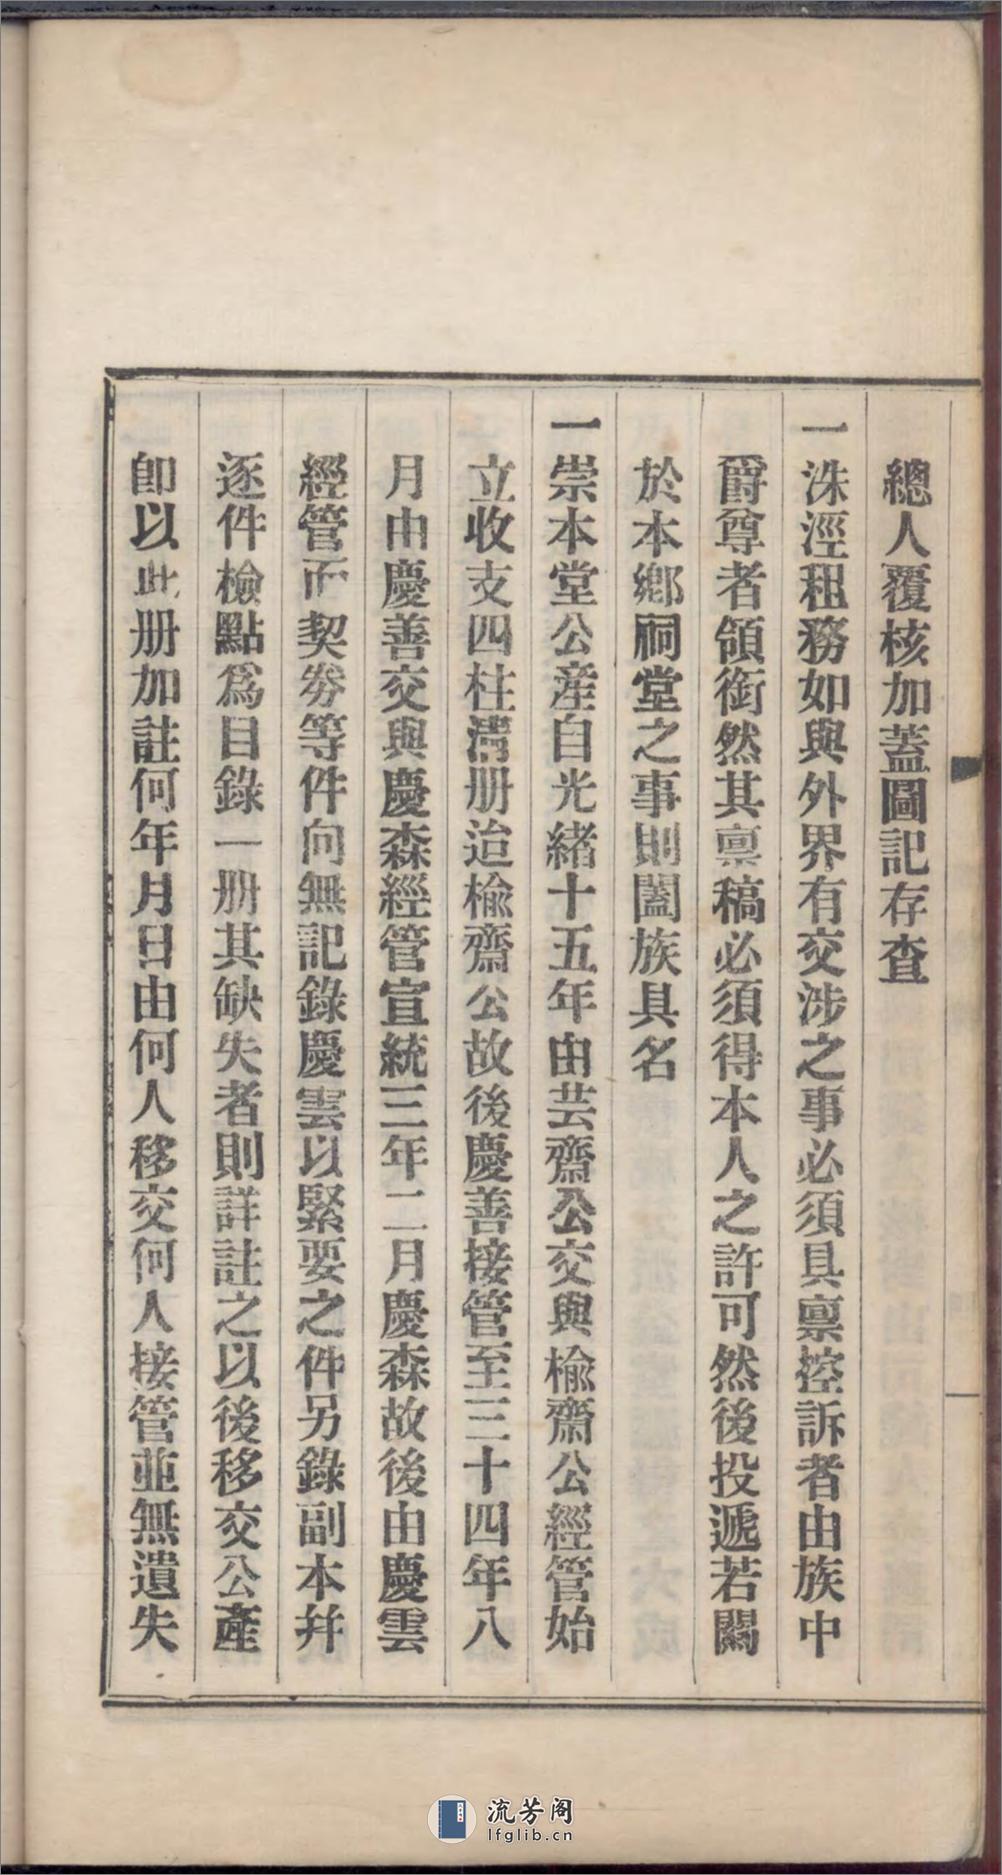 總人覆核加蓋圖記存查
一洙涇租務如與外界有交涉之事必須具稟控訴者由族中
爵尊者領銜然其稟稿必須得本人之許可然後投遞若關
於本鄉祠堂之事則闔族具名
一崇本堂公産自光緒十五年由芸齋公交與楡齋公經管始
立收支四柱淸册迨楡齋公故後慶善接管至三十四年八
月由慶善交與慶森經管宣統三年二月慶森故後由慶雲
經管而契劵等件向無記錄慶雲以緊要之件另錄副本幷
逐件檢點爲目錄一册其缺失者則詳註之以後移交公產
卽以此册加註何年月日由何人移交何人接管並無遺失
流芳阁
lfglib.cn